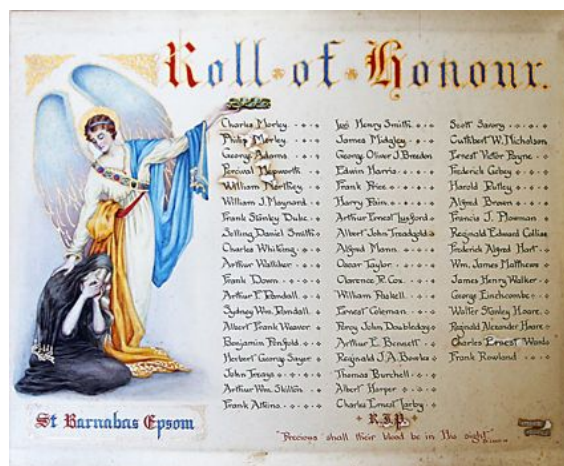 Roll of Honour.
Charles Morley
Philip Morley
George Adams
Percival Hepworth
William Northey
William J. Maynard
Frank Stanley Duke
Selling Daniel Smith
Charles Whiting
Arthur Walliker
Frank Down
Arthur F. Randall
Sydney Wm. Randall
Albert Frank Weaver
Benjamin Penfold
Herbert George Sayer
John Treays
Arthur Wm. Skilton
Frank Atkins
Jas. Henry Smith
James Midgley
George Oliver J. Breedon
Edwin Harris
Frank Price
Harry Pain
Arthur Ernest Luxford
Albert John Treadgold
Alfred Mann
Oscar Taylor
Clarence R. Cox
William Paskell
Ernest Coleman
Percy John Doubleday
Arthur E. Bennett
Reginald J. A. Bowles
Thomas Burchell
Albert Harper
Charles Ernest Tarby
Scott Savory
Cuthbert W. Nicholson
Ernest Victor Payne
Frederick Gabey
Harold Putley
Alfred Brown
Francis J. Plowman
Reginald Edward Collins
Frederick Alfred Hart
Wm. James Matthews
James Henry Walker
George Linchcombe
Walter Stanley Hoare
Reginald Alexander Hoare
Charles Ernest Woods
Frank Rowland
R.I.P.
St Barnabas Epsom
"Precious shall their blood be in His sight"